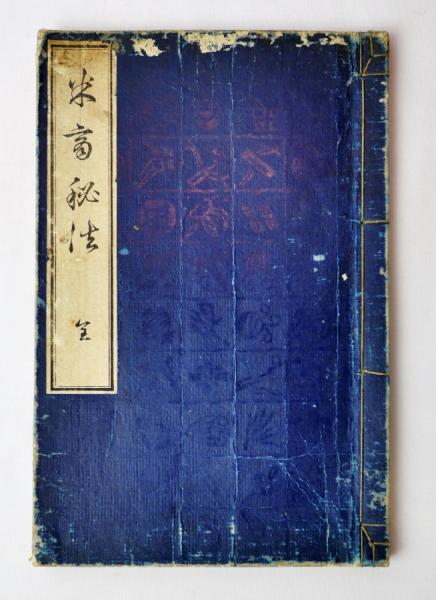 米商秘法
全